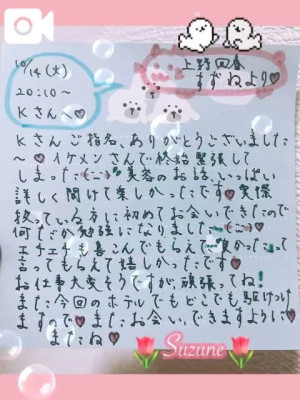 10/14(火)
20:10～
Kさんへ♡
上野回春
すずねより♡
Kさんご指名、ありがとうございました
～♡イケメンさんで終始緊張して
しまった(;_;)♡美容のお話、いっぱい
詳しく聞けて楽しかったです♥実際
扱っている方に初めてお会いできたので
何だか勉強になりました(;_;)♡
エチエチも喜こんでもらえて"良かった"って
言ってもらえて嬉しかったです♥
お仕事大変そうですが、頑張ってね!
また今回のホテルでもどこでも駆けつけ
ますので♥またお会いできますように♡
またね♡
Suzune